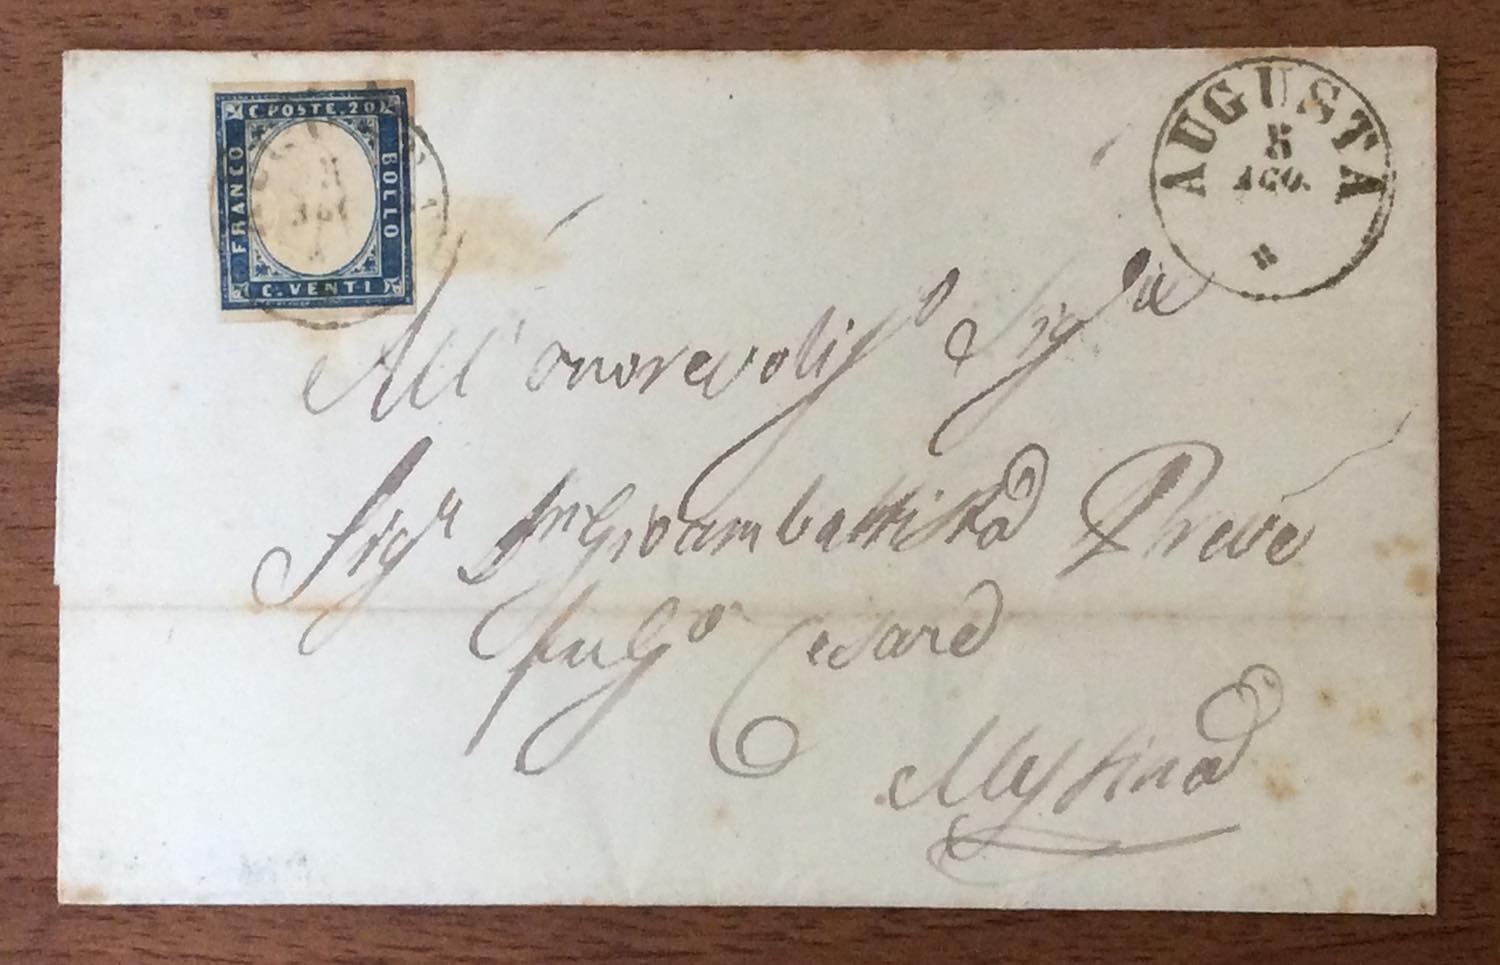 C. POSTE. 20
FRANCO
BOLLO
C. VENTI
AUGUSTA
AGO.
All' onorevoliss
Sigr Dn Giovambattista Preve
fu Go Cesare
Messina